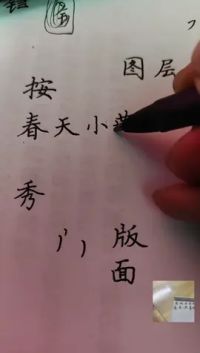 图层
按
春天小
秀
版
面